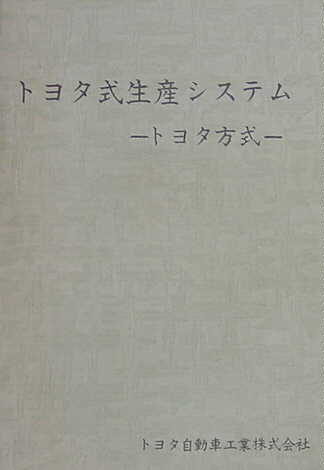 トヨタ式生産システム
ートヨタ方式ー
トヨタ自動車工業株式会社